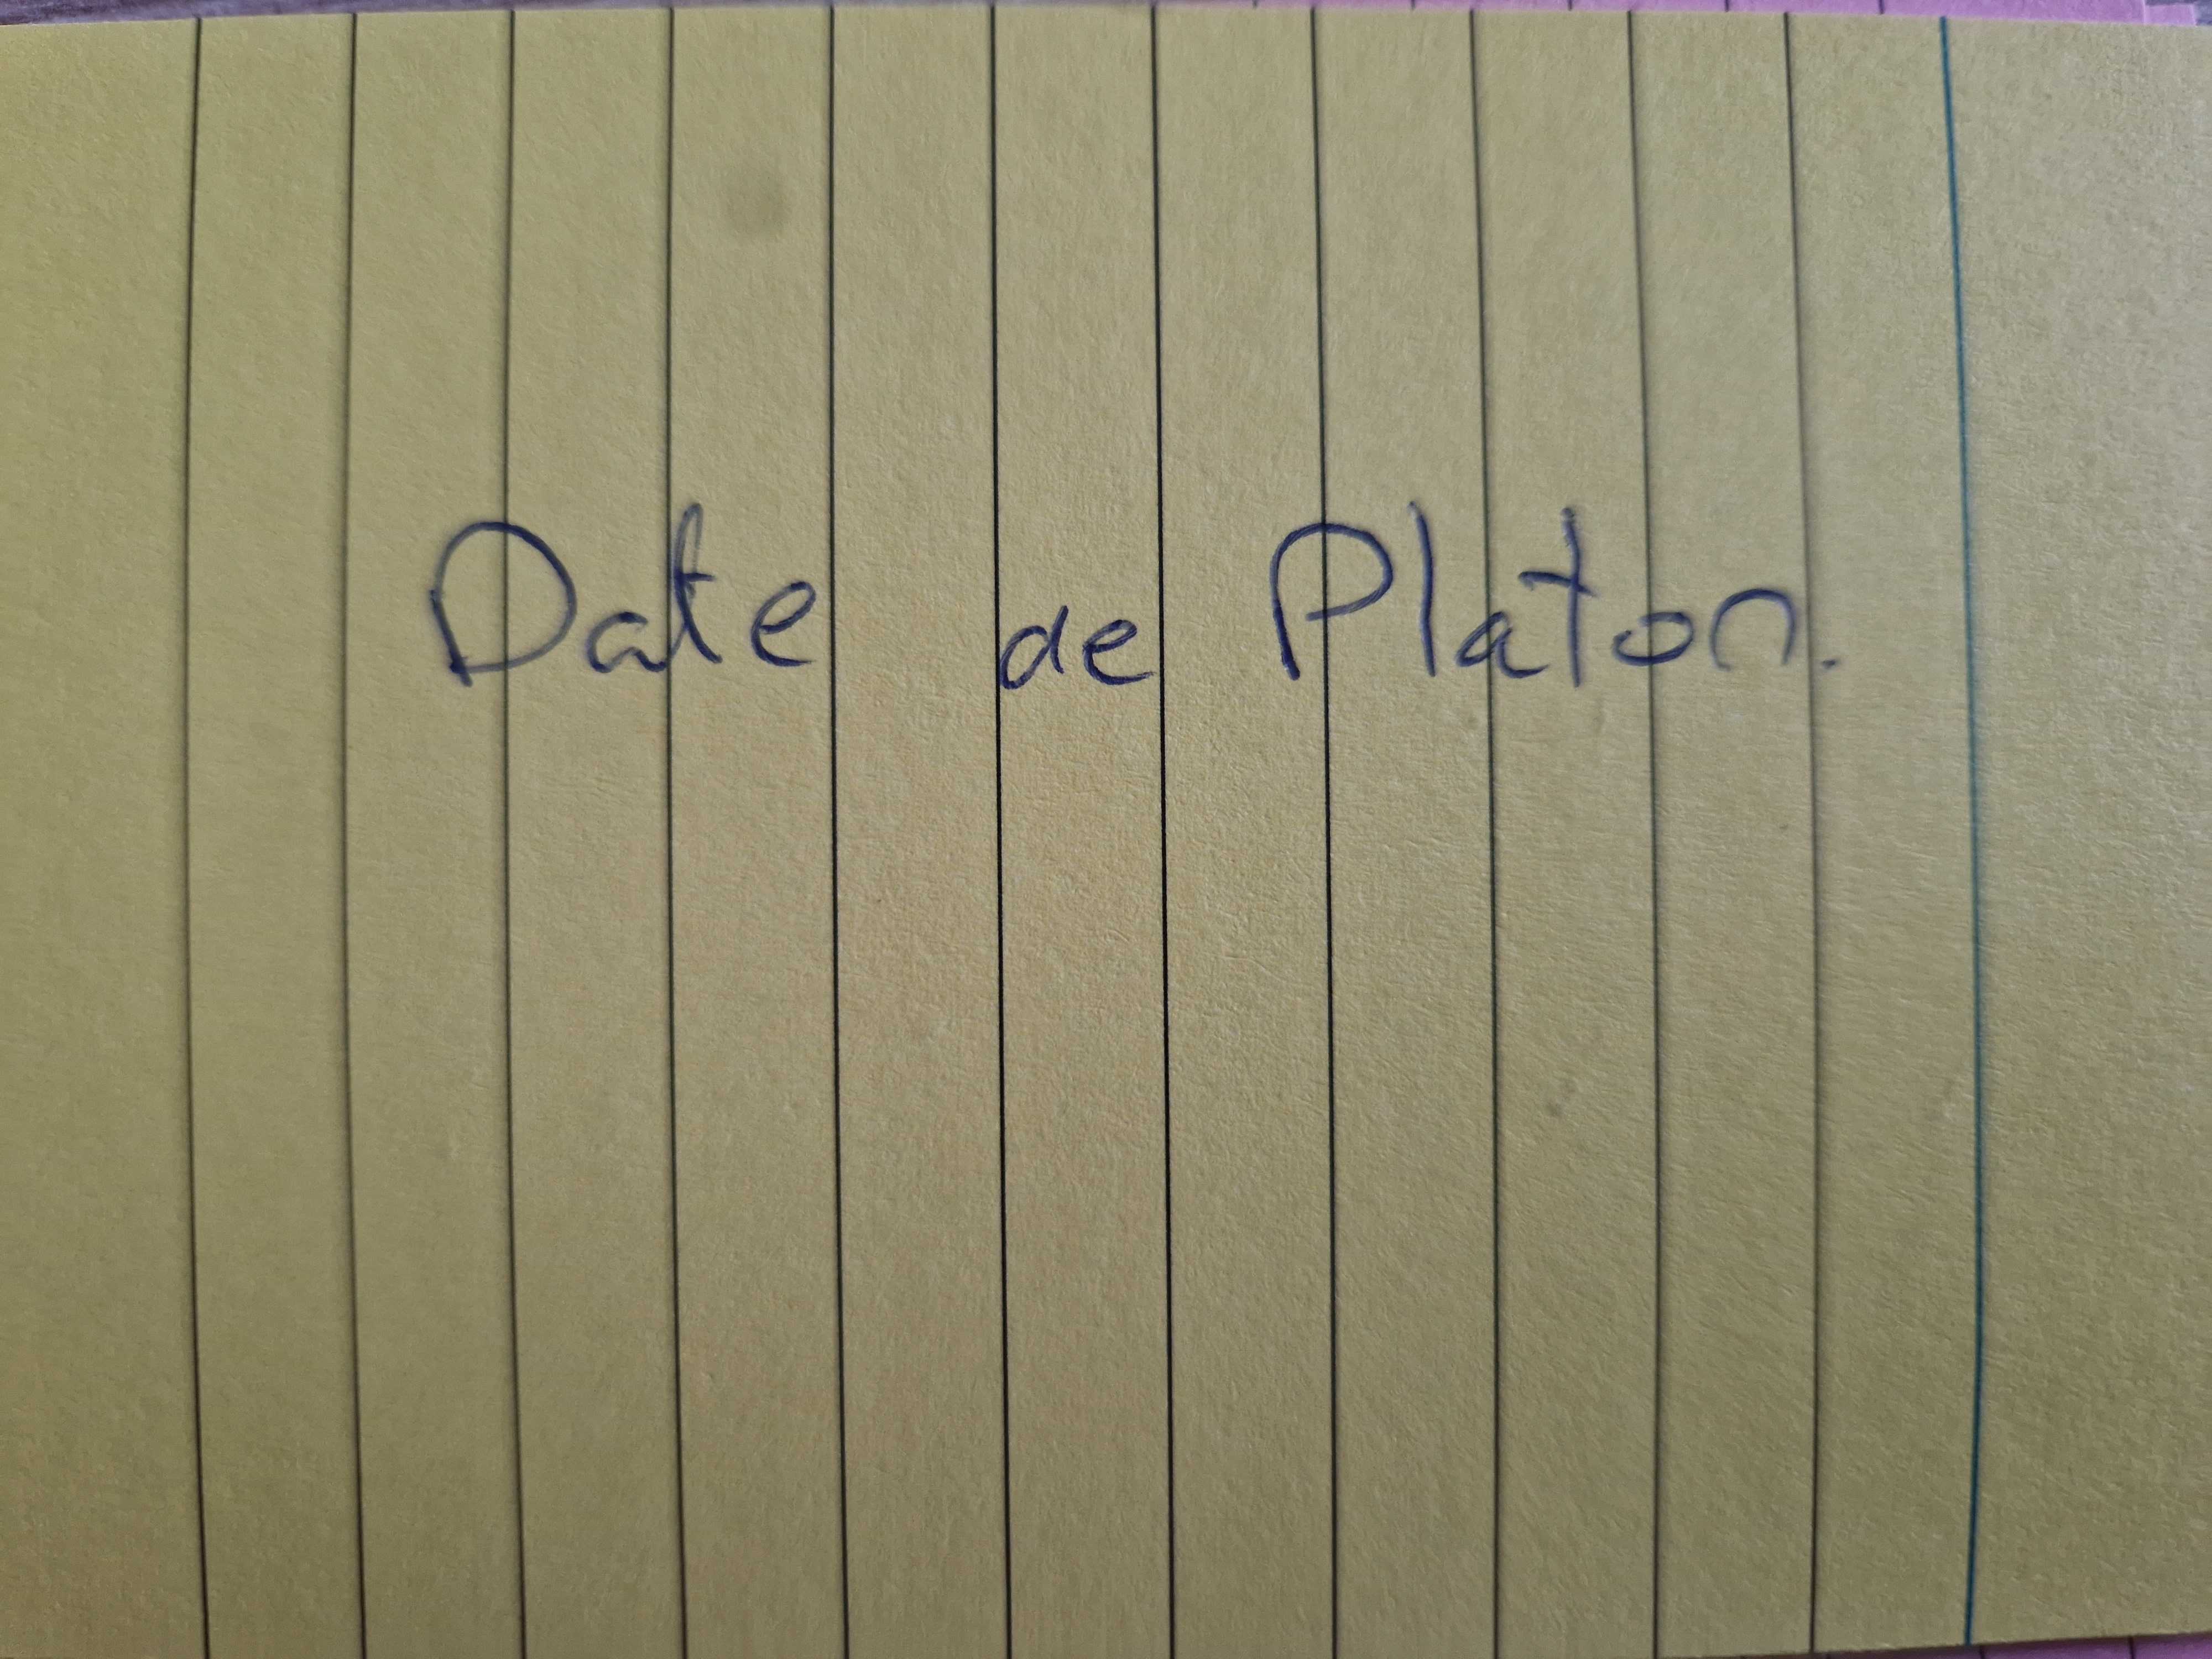 Date de Platon.